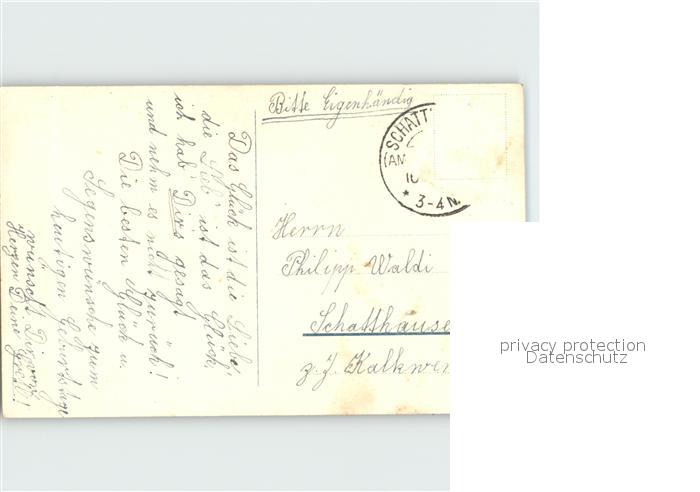 Das Glück ist die Liebe,
die Lieb' ist das Glück,
ich hab' Dir's gesagt
und nehm es nicht zurück!
Die besten Glück u.
Segenswünsche zum
heutigen Geburtstage
wünscht Dir von
Herzen Deine
Bitte Eigenhändig
SCHATT
(AM
3-4N.
Herrn
Philipp Waldi
Schatthause
z. J. Kalkwer
privacy protection
Datenschutz